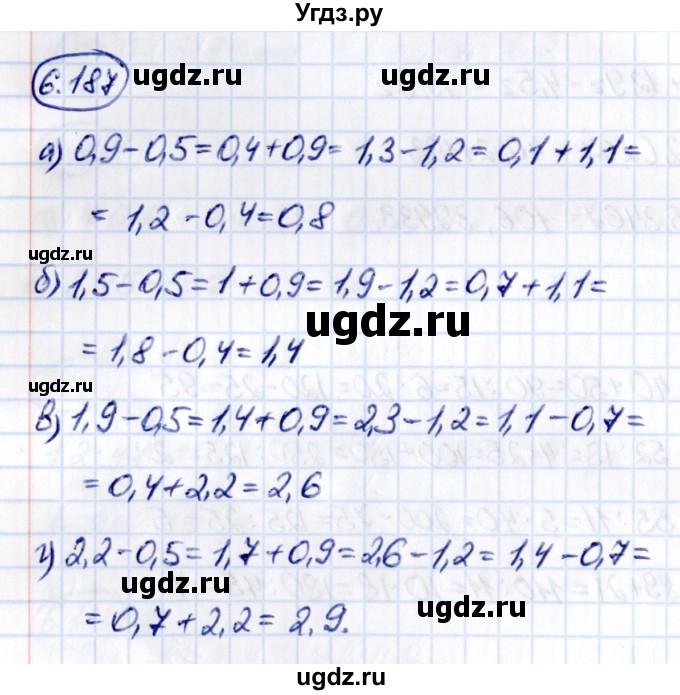 Угдз.ру
6.187
ugdz.ru
ugdz.ru
а) 0,9-0,5=0,4+0,9=1,3-1,2=0,1+1,1=
=1,2-0,4=0,8
ugdz.ru
ugdz.ru
б) 1,5-0,5=1+0,9=1,9-1,2=0,7+1,1=
ugdz.ru
=1,8-0,4=1,4
ugdz.ru
в) 1,9-0,5=1,4+0,9=2,3-1,2=1,1-0,7=
=0,4+2,2=2,6
ugdz.ru
ugdz.ru
г) 2,2-0,5=1,7+0,9=2,6-1,2=1,4-0,7=
ugdz.ru
ugdz.ru
=0,7+2,2=2,9.
ugdz.ru
ugdz.ru